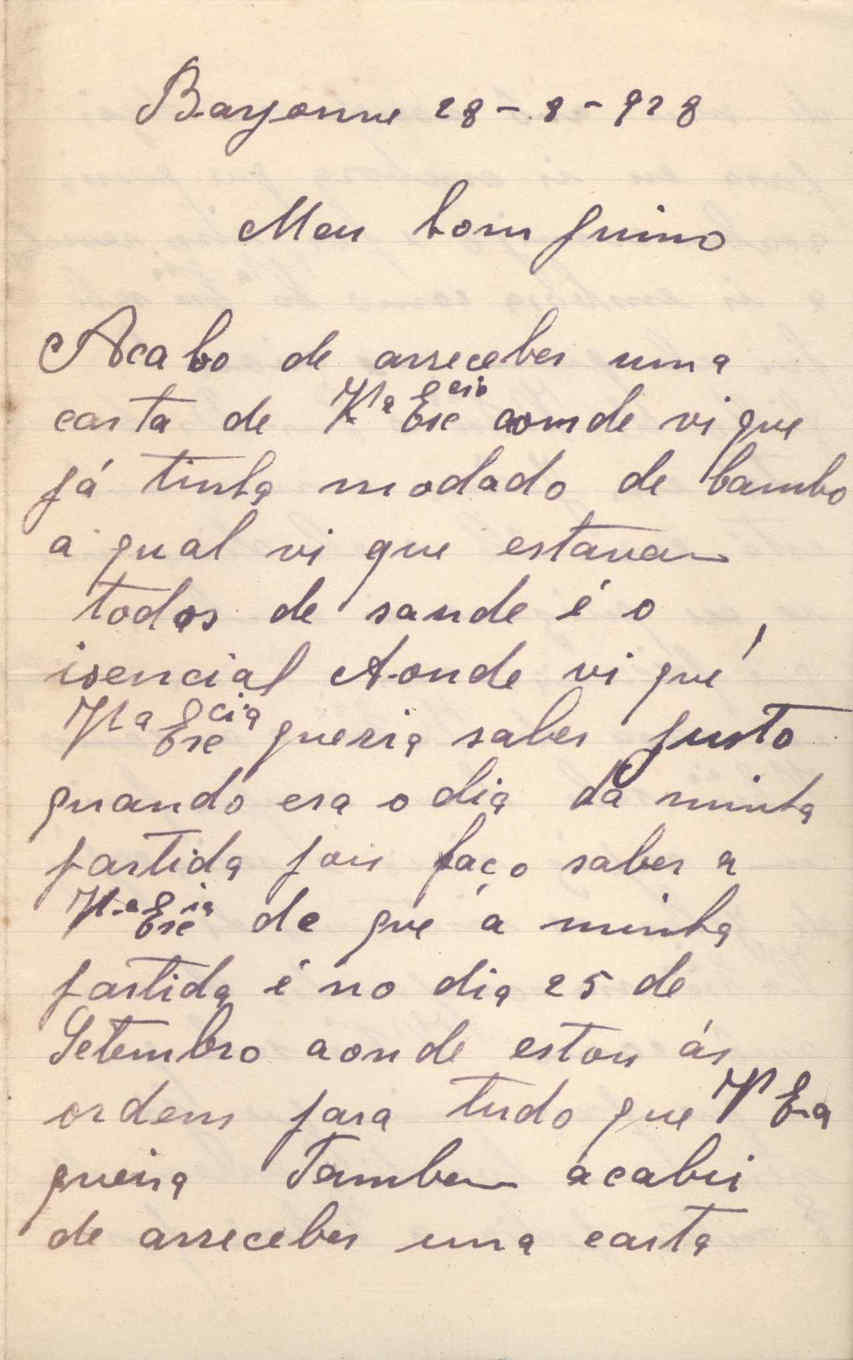 Bayonne 28-8-928
Meu bom primo
Acabo de arreceber uma
carta de Vª Excia aonde vi que
já tinha modado de bambo
a qual vi que estavam
todos de saude é o
isencial Aonde vi qué
Vª Excia queria saber justo
quando era o dia da minha
partida pois faço saber a
Vª Excia de que á minha
partida é no dia 25 de
Setembro aonde estou ás
ordens para tudo que Vª Exa
queira Tambem acabei
de arreceber una carta